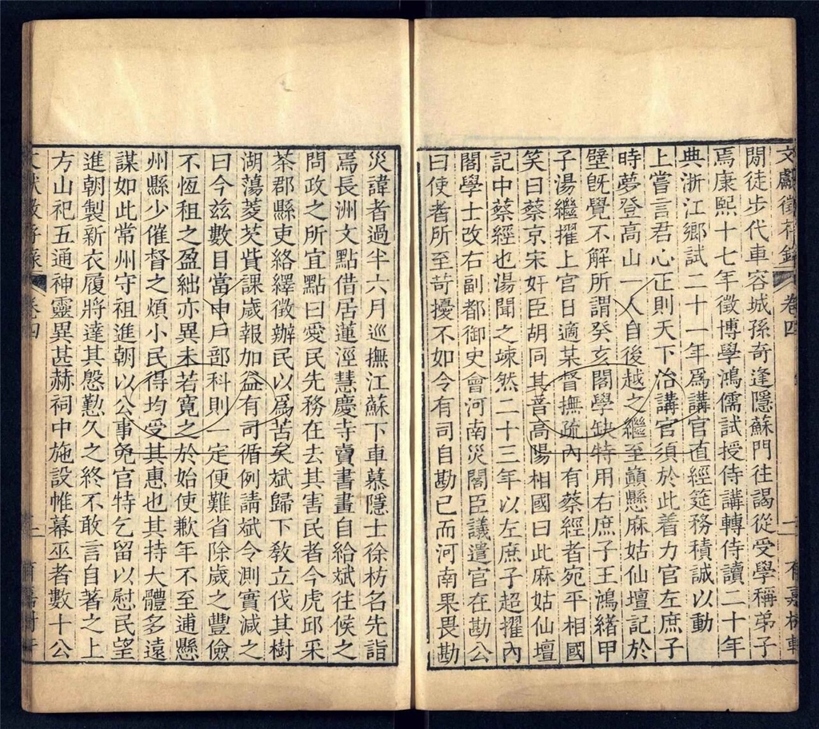 文獻徵存錄 卷四 一 有嘉樹軒
閉徒步代車容城孫奇逢隱蘇門往謁從受學稱弟子
焉康熙十七年徵博學鴻儒試授侍講轉侍讀二十年
典浙江鄉試二十一年爲講官直經筵務積誠以動
上嘗言君心正則天下治講官須於此着力官左庶子
時夢登高山一人自後越之繼至巔懸麻姑仙壇記於
壁旣覺不解所謂癸亥閣學缺特用右庶子王鴻緒甲
子湯繼擢上官日適某督撫疏內有蔡經者宛平相國
笑曰蔡京宋奸臣胡同其音高陽相國曰此麻姑仙壇
記中蔡經也湯聞之竦然二十三年以左庶子超擢內
閣學士改右副都御史會河南災閣臣議遣官在勘公
曰使者所至苛擾不如令有司自勘已而河南果畏勘
災諱者過半六月巡撫江蘇下車慕隱士徐枋名先詣
焉長洲文點借居蓮涇慧慶寺賣書畫自給斌往候之
問政之所宜點曰愛民先務在去其害民者今虎邱采
茶郡縣吏絡繹徵辦民以爲苦矣斌歸下敎立伐其樹
湖蕩菱芡貲課歲報加益有司循例請斌令測實減之
曰今兹數目當申戶部科則一定便難省除歲之豐儉
不恆租之盈絀亦異未若寬之於始使歉年不至逋懸
州縣少催督之煩小民得均受其惠也其持大體多遠
謀如此常州守祖進朝以公事免官特乞留以慰民望
進朝製新衣履將達其慇懃久之終不敢言自著之上
方山祀五通神靈異甚赫祠中施設帷幕巫者數十公
文獻徵存錄 卷四 二 有嘉樹軒